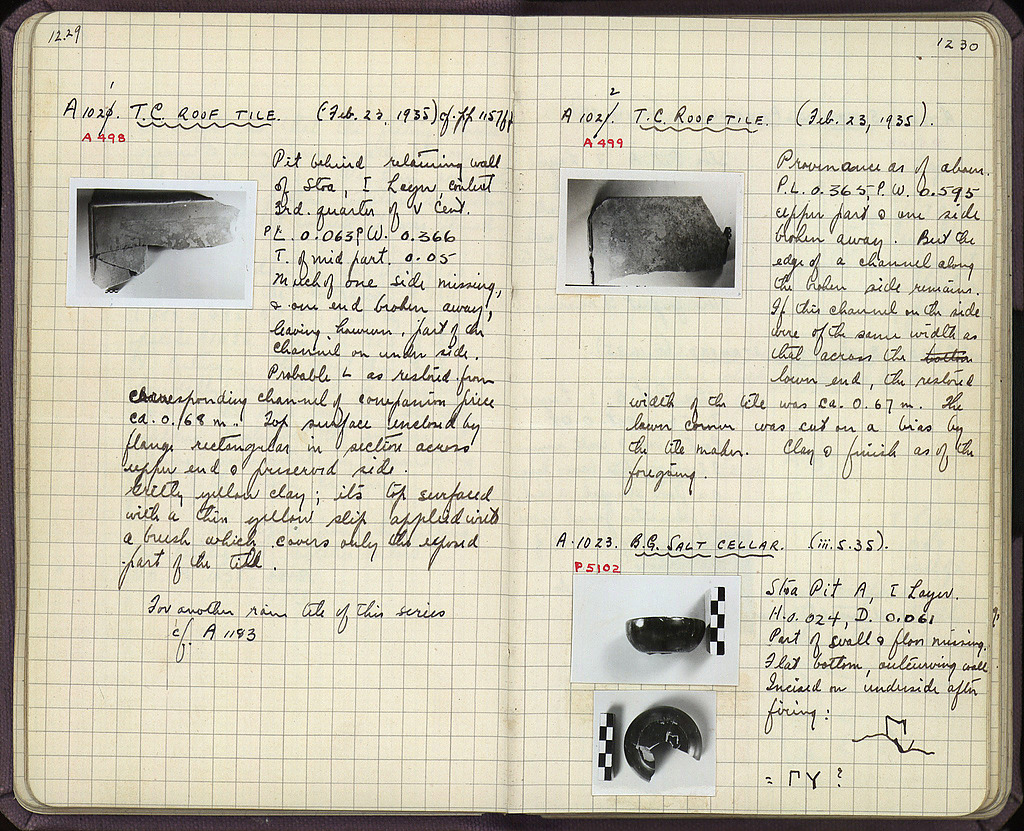 1229
A 1021. T.C. ROOF TILE. (Feb. 23, 1935) cf. pp 1157ff
A 498
Pit behind retaining wall
of Stoa, I Layer, context
3rd. quarter of V Cent.
P.L. 0.063, P.W. 0.366
T. of mid part. 0.05
Much of one side missing,
& one end broken away,
leaving however, part of the
channel on under side.
Probable L as restored from
corresponding channel of companion piece
ca. 0.68 m.. Top surface enclosed by
flange rectangular in section across
upper end & preserved side.
Gritty yellow clay; its top surfaced
with a thin yellow slip applied with
a brush which covers only the exposed
part of the tile.
For another rain tile of this series
cf. A 1193
1230
A 1022. T.C. ROOF TILE. (Feb. 23, 1935).
A 499
Provenance as of above.
P.L. 0.365, P.W. 0.595
upper part & one side
broken away. But the
edge of a channel along
the broken side remains.
If this channel on the side
were of the same width as
that across the bottom
lower end, the restored
width of the tile was ca. 0.67 m. The
lower corner was cut on a bias by
the tile maker. Clay & finish as of the
foregoing.
A.1023. B.G. SALT CELLAR. (iii.5.35).
P 5102
Stoa Pit A, I Layer.
H. 0.024, D. 0.061
Part of wall & floor missing.
Flat bottom, outcurving wall
Incised on underside after
firing:
= ΓΥ ?